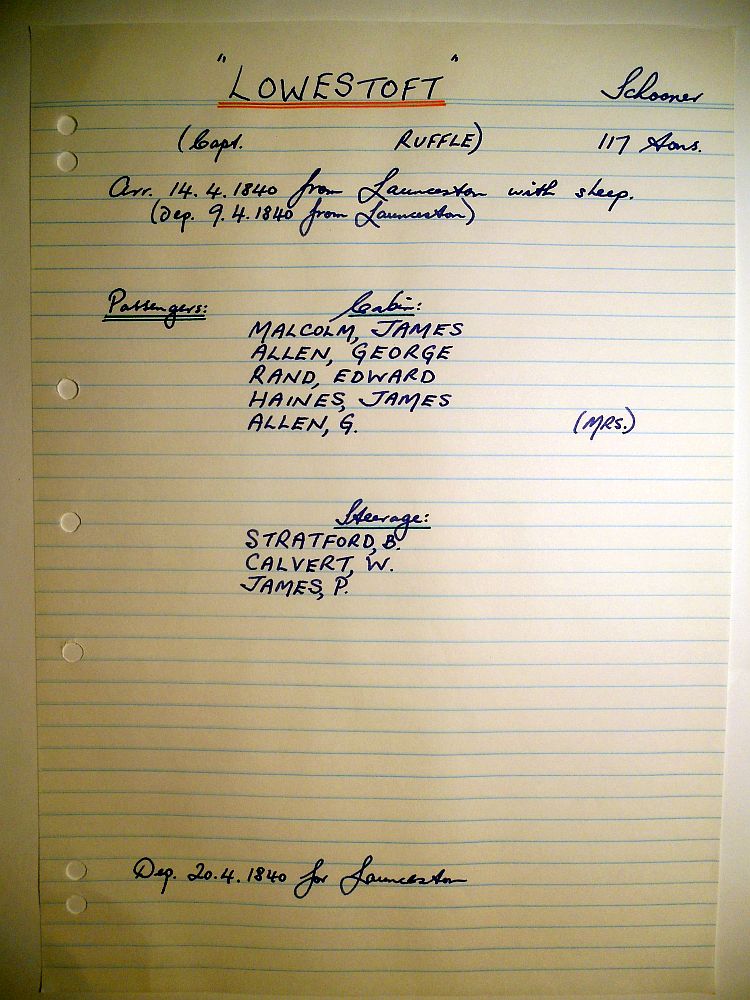 "LOWESTOFT" Schooner
(Capt. RUFFLE) 117 tons.
Arr. 14.4.1840 from Launceston with sheep.
(Dep. 9.4.1840 from Launceston)
Passengers: Cabin:
MALCOLM, JAMES
ALLEN, GEORGE
RAND, EDWARD
HAINES, JAMES
ALLEN, G. (MRS.)
Steerage:
STRATFORD, B.
CALVERT, W.
JAMES, P.
Dep. 20.4.1840 for Launceston